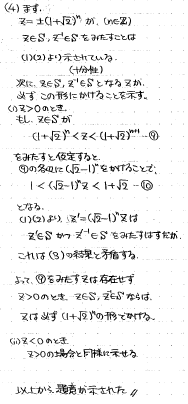 (4) まず、
z = ±(1+√2)ⁿ が、(n∈ℤ)
z∈S, z⁻¹∈S をみたすことは
(1)(2)より示されている。
(十分性)
次に、z∈S, z⁻¹∈S となる z が、
必ずこの形にかけることを示す。
(i) z>0 のとき、
もし z∈S が
(1+√2)ⁿ < z < (1+√2)ⁿ⁺¹ …⑨
をみたすと仮定すると、
⑨の各辺に (√2−1)ⁿ をかけることで、
1 < (√2−1)ⁿ z < 1+√2 …⑩
となる。
(1)(2)より、z' = (√2−1)ⁿ z は
z'∈S かつ z'⁻¹∈S をみたすはずだが、
これは (3) の結果と矛盾する。
よって、⑨をみたす z は存在せず
z>0 のとき、z∈S, z⁻¹∈S ならば、
z は必ず (1+√2)ⁿ の形でかける。
(ii) z<0 のとき
z>0 の場合と同様に示せる
以上から、題意が示された //